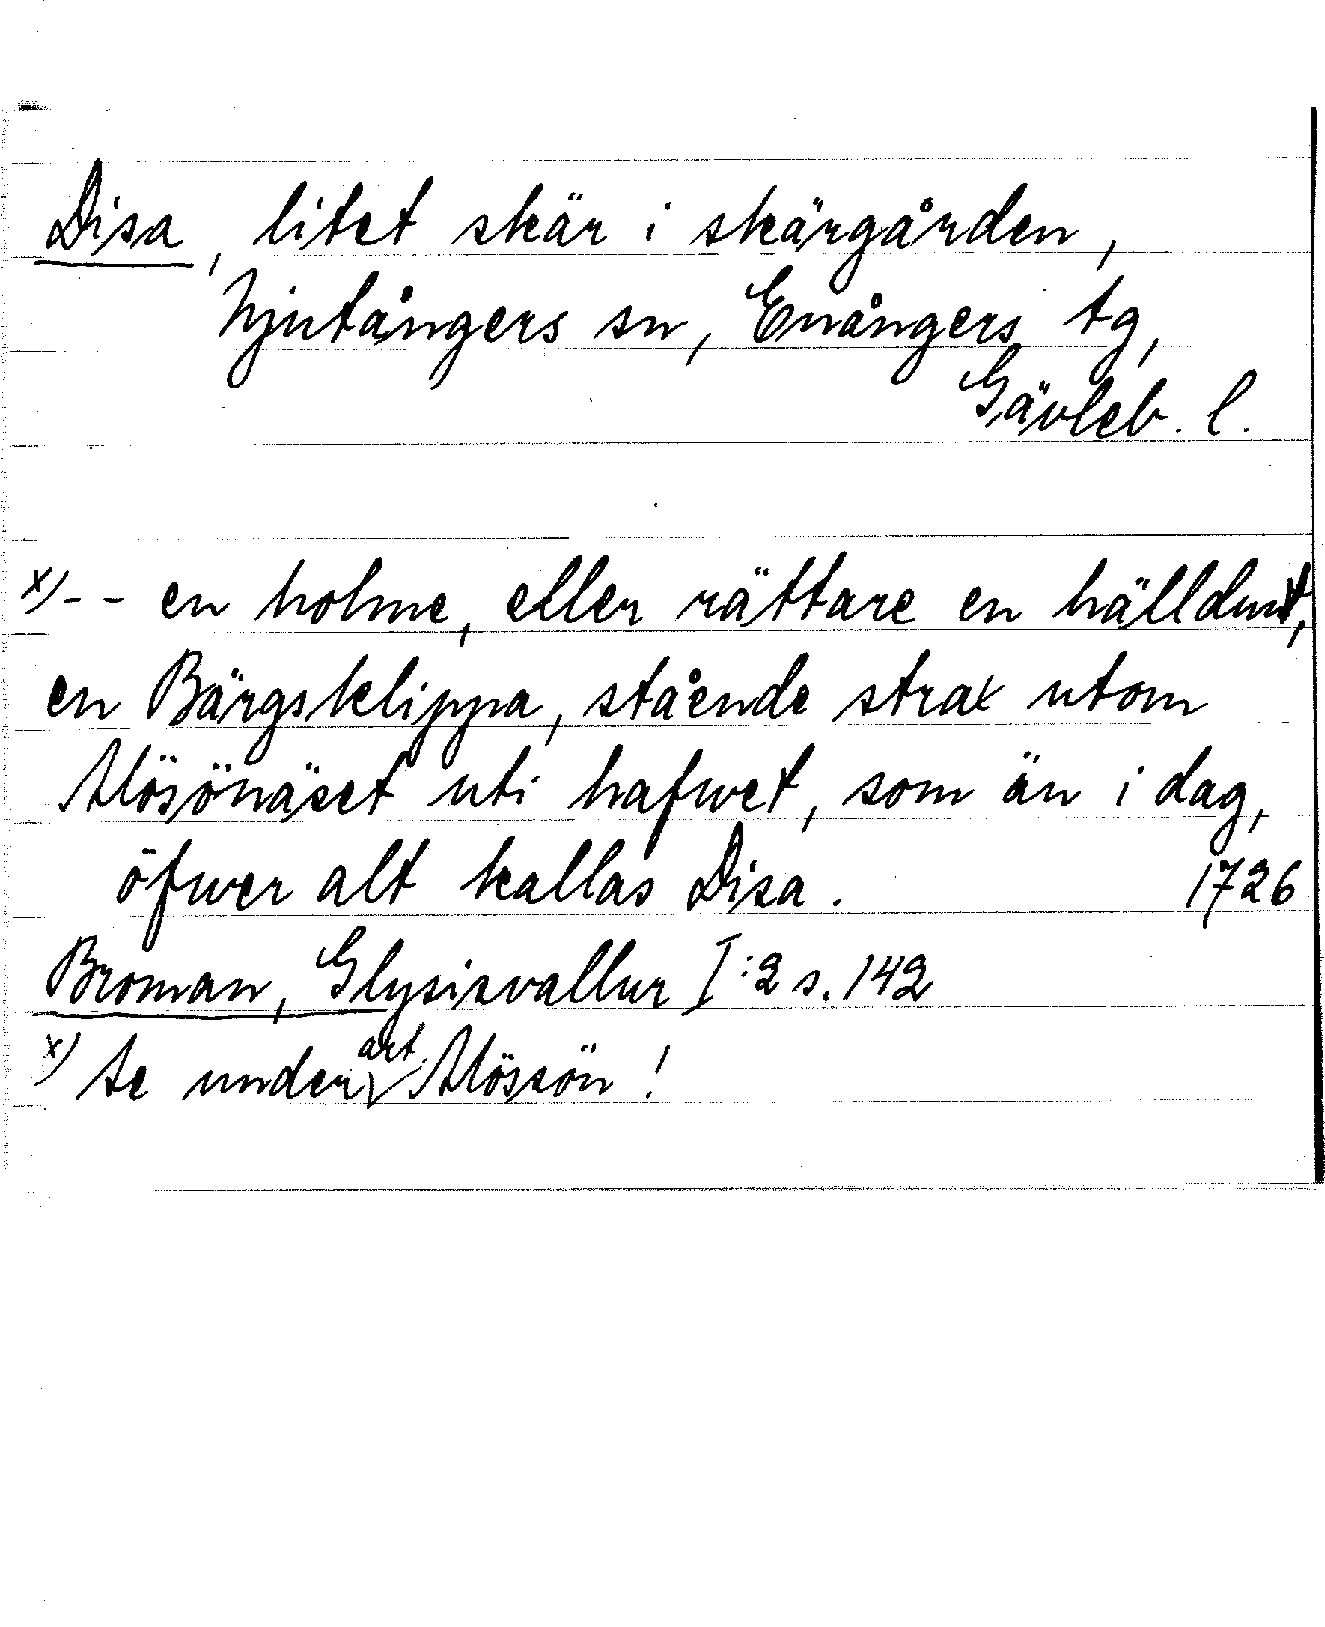 Disa, litet skär i skärgården,
Njutångers sn, Enångers tg,
Gävleb. l.
x) - - en holme, eller rättare en hälldut,
en Bärgsklippa, stående strax utom
Mösönäset uti hafwet, som än i dag,
öfwer alt kallas Disa. 1726
Broman, Glysisvallur I:2 s. 142
x) Se under art. Mössön!